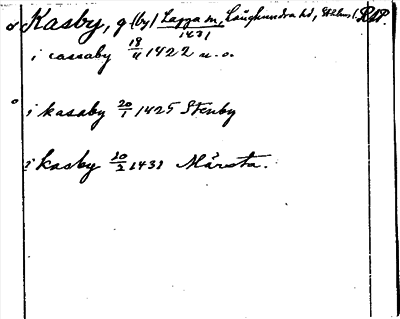 Kasby, g (by) Lagga sn, Långhundra hd, Sthlms l. RAP.
1431
i cassaby 18/11 1422 u. o.
i kasaby 20/1 1425 Stenby
i kasby 20/2 1431 Mårsta.